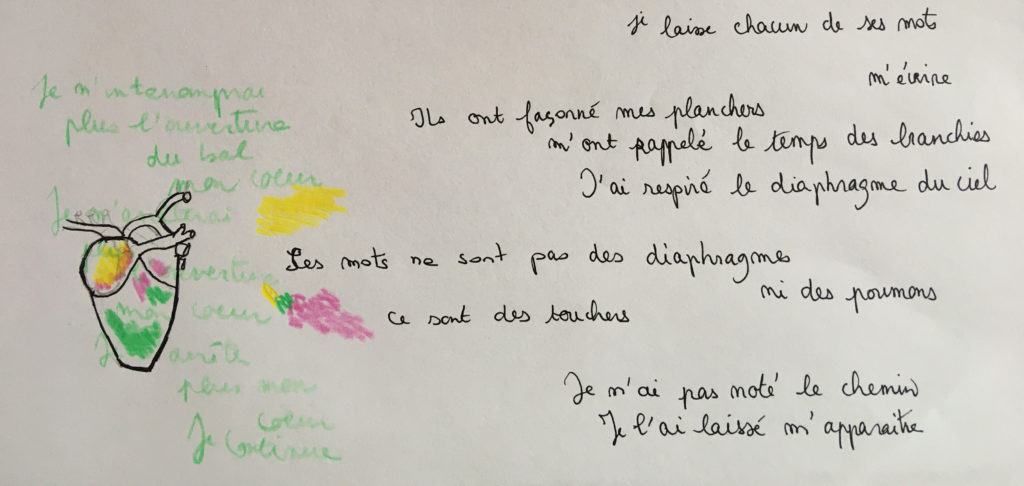 je laisse chacun de ses mots
m'écrire
Ils ont façonné mes planchers
m'ont rappelé le temps des branchies
J'ai respiré le diaphragme du ciel
Les mots ne sont pas des diaphragmes
ni des poumons
ce sont des touchers
Je n'ai pas noté le chemin
Je l'ai laissé m'apparaitre
Je n'interromprai
plus l'ouverture
du bal
mon coeur
Je
ouverture
mon coeur
arrête
plus mon
coeur
Je continue